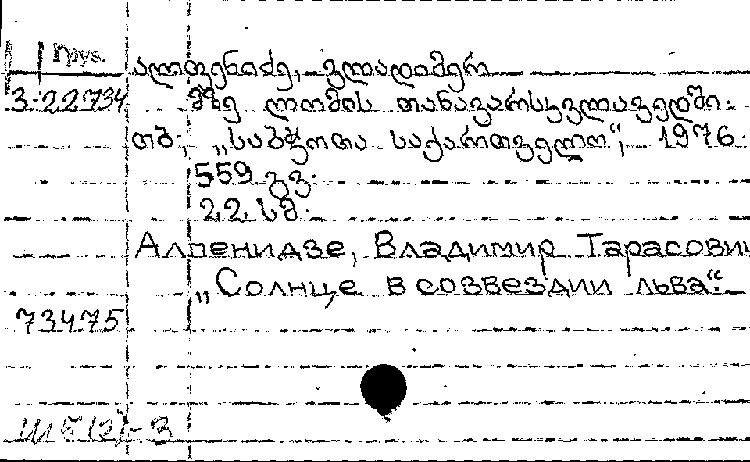 ალფენიძე, ვლადიმერ
3-22734 მზე ლომის თანავარსკვლავედში.
თბ., „საბჭოთა საქართველო“, 1976.
559 გვ.
22 სმ.
Алпенидзе, Владимир Тарасович
„Солнце в созвездии льва“.
73475